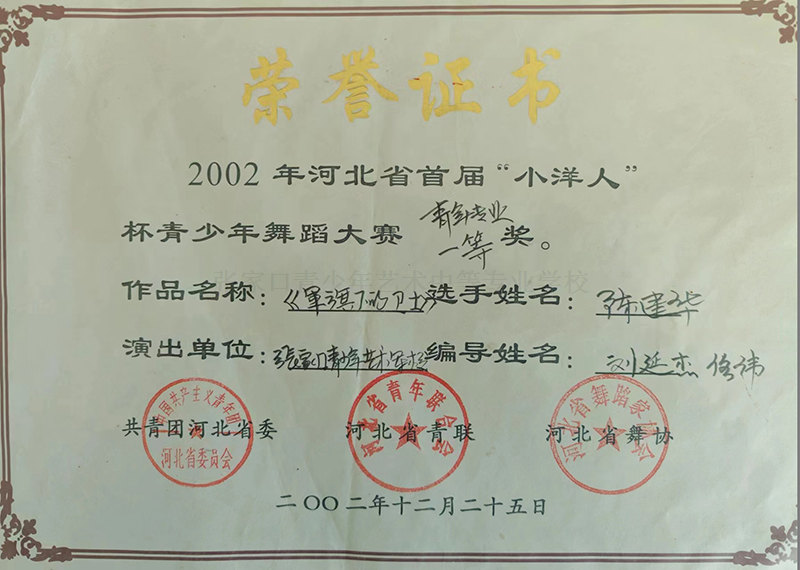 荣誉证书
2002年河北省首届“小洋人”
杯青少年舞蹈大赛 青年专业 一等 奖。
张家口青少年艺术中等专业学校
作品名称：《军旗下的卫士》选手姓名：陈建华
演出单位：张家口青少年艺术学校 编导姓名：刘延杰 佟伟
中国共产主义青年团
河北省委员会
河北省青年联合会
河北省舞蹈家协会
共青团河北省委 河北省青联 河北省舞协
二〇〇二年十二月二十五日